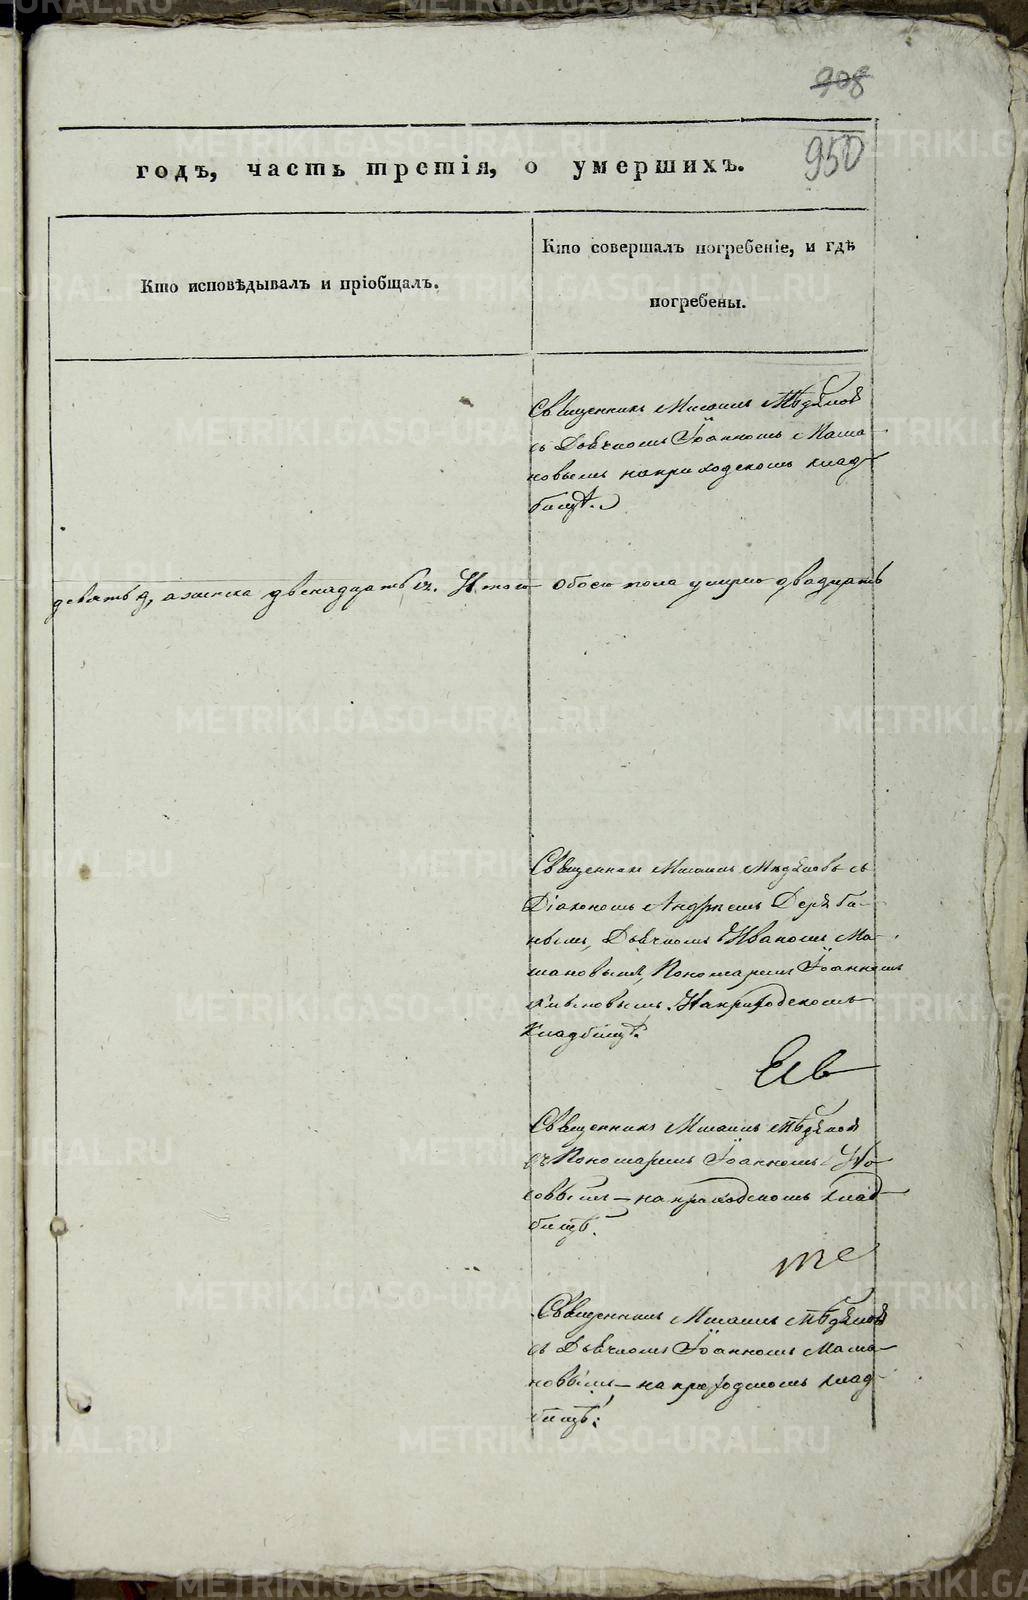 908
950
годъ, часть третія, о умершихъ.
Кто исповѣдывалъ и пріобщалъ.
Кто совершалъ погребеніе, и гдѣ
погребены.
Священникъ Михаилъ
съ Дьячкомъ Іоанномъ Мама-
новымъ на приходскомъ клад-
бищѣ.
девять, а женска двенадцать. Итого обоего пола умерло двадцать
Священникъ Михаилъ съ
Діакономъ Андреемъ Деряби-
нымъ, Дьячкомъ Иваномъ Ма-
мановымъ, Пономаремъ Іоанномъ
на приходскомъ
кладбищѣ.
Священникъ Михаилъ
съ Пономаремъ Іоанномъ
на приходскомъ клад-
бищѣ.
Священникъ Михаилъ
съ Дьячкомъ Іоанномъ Мама-
новымъ на приходскомъ клад-
бищѣ.
METRIKI.GASO-URAL.RU